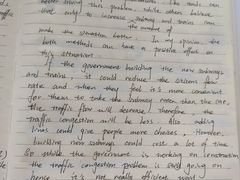 better solving this problem, while others believe
that only to increase subway and trains can
the number of
make the situation better. In my opinion, the
both methods can have a positive effect on
this situation.
If the government building the new subways
and trains, it could reduce the citizens
rate and when they feel it's more convenient
for them to take the subway rather than the car.
the traffic flow will decrease, therefore, the
traffic congestion will be less. Also, adding
lines could give people more choices. However,
building new subways could cost a lot of time.
So while the goverment is working on construction
the traffic congestion problem is still going on
hence, it's not really efficient most